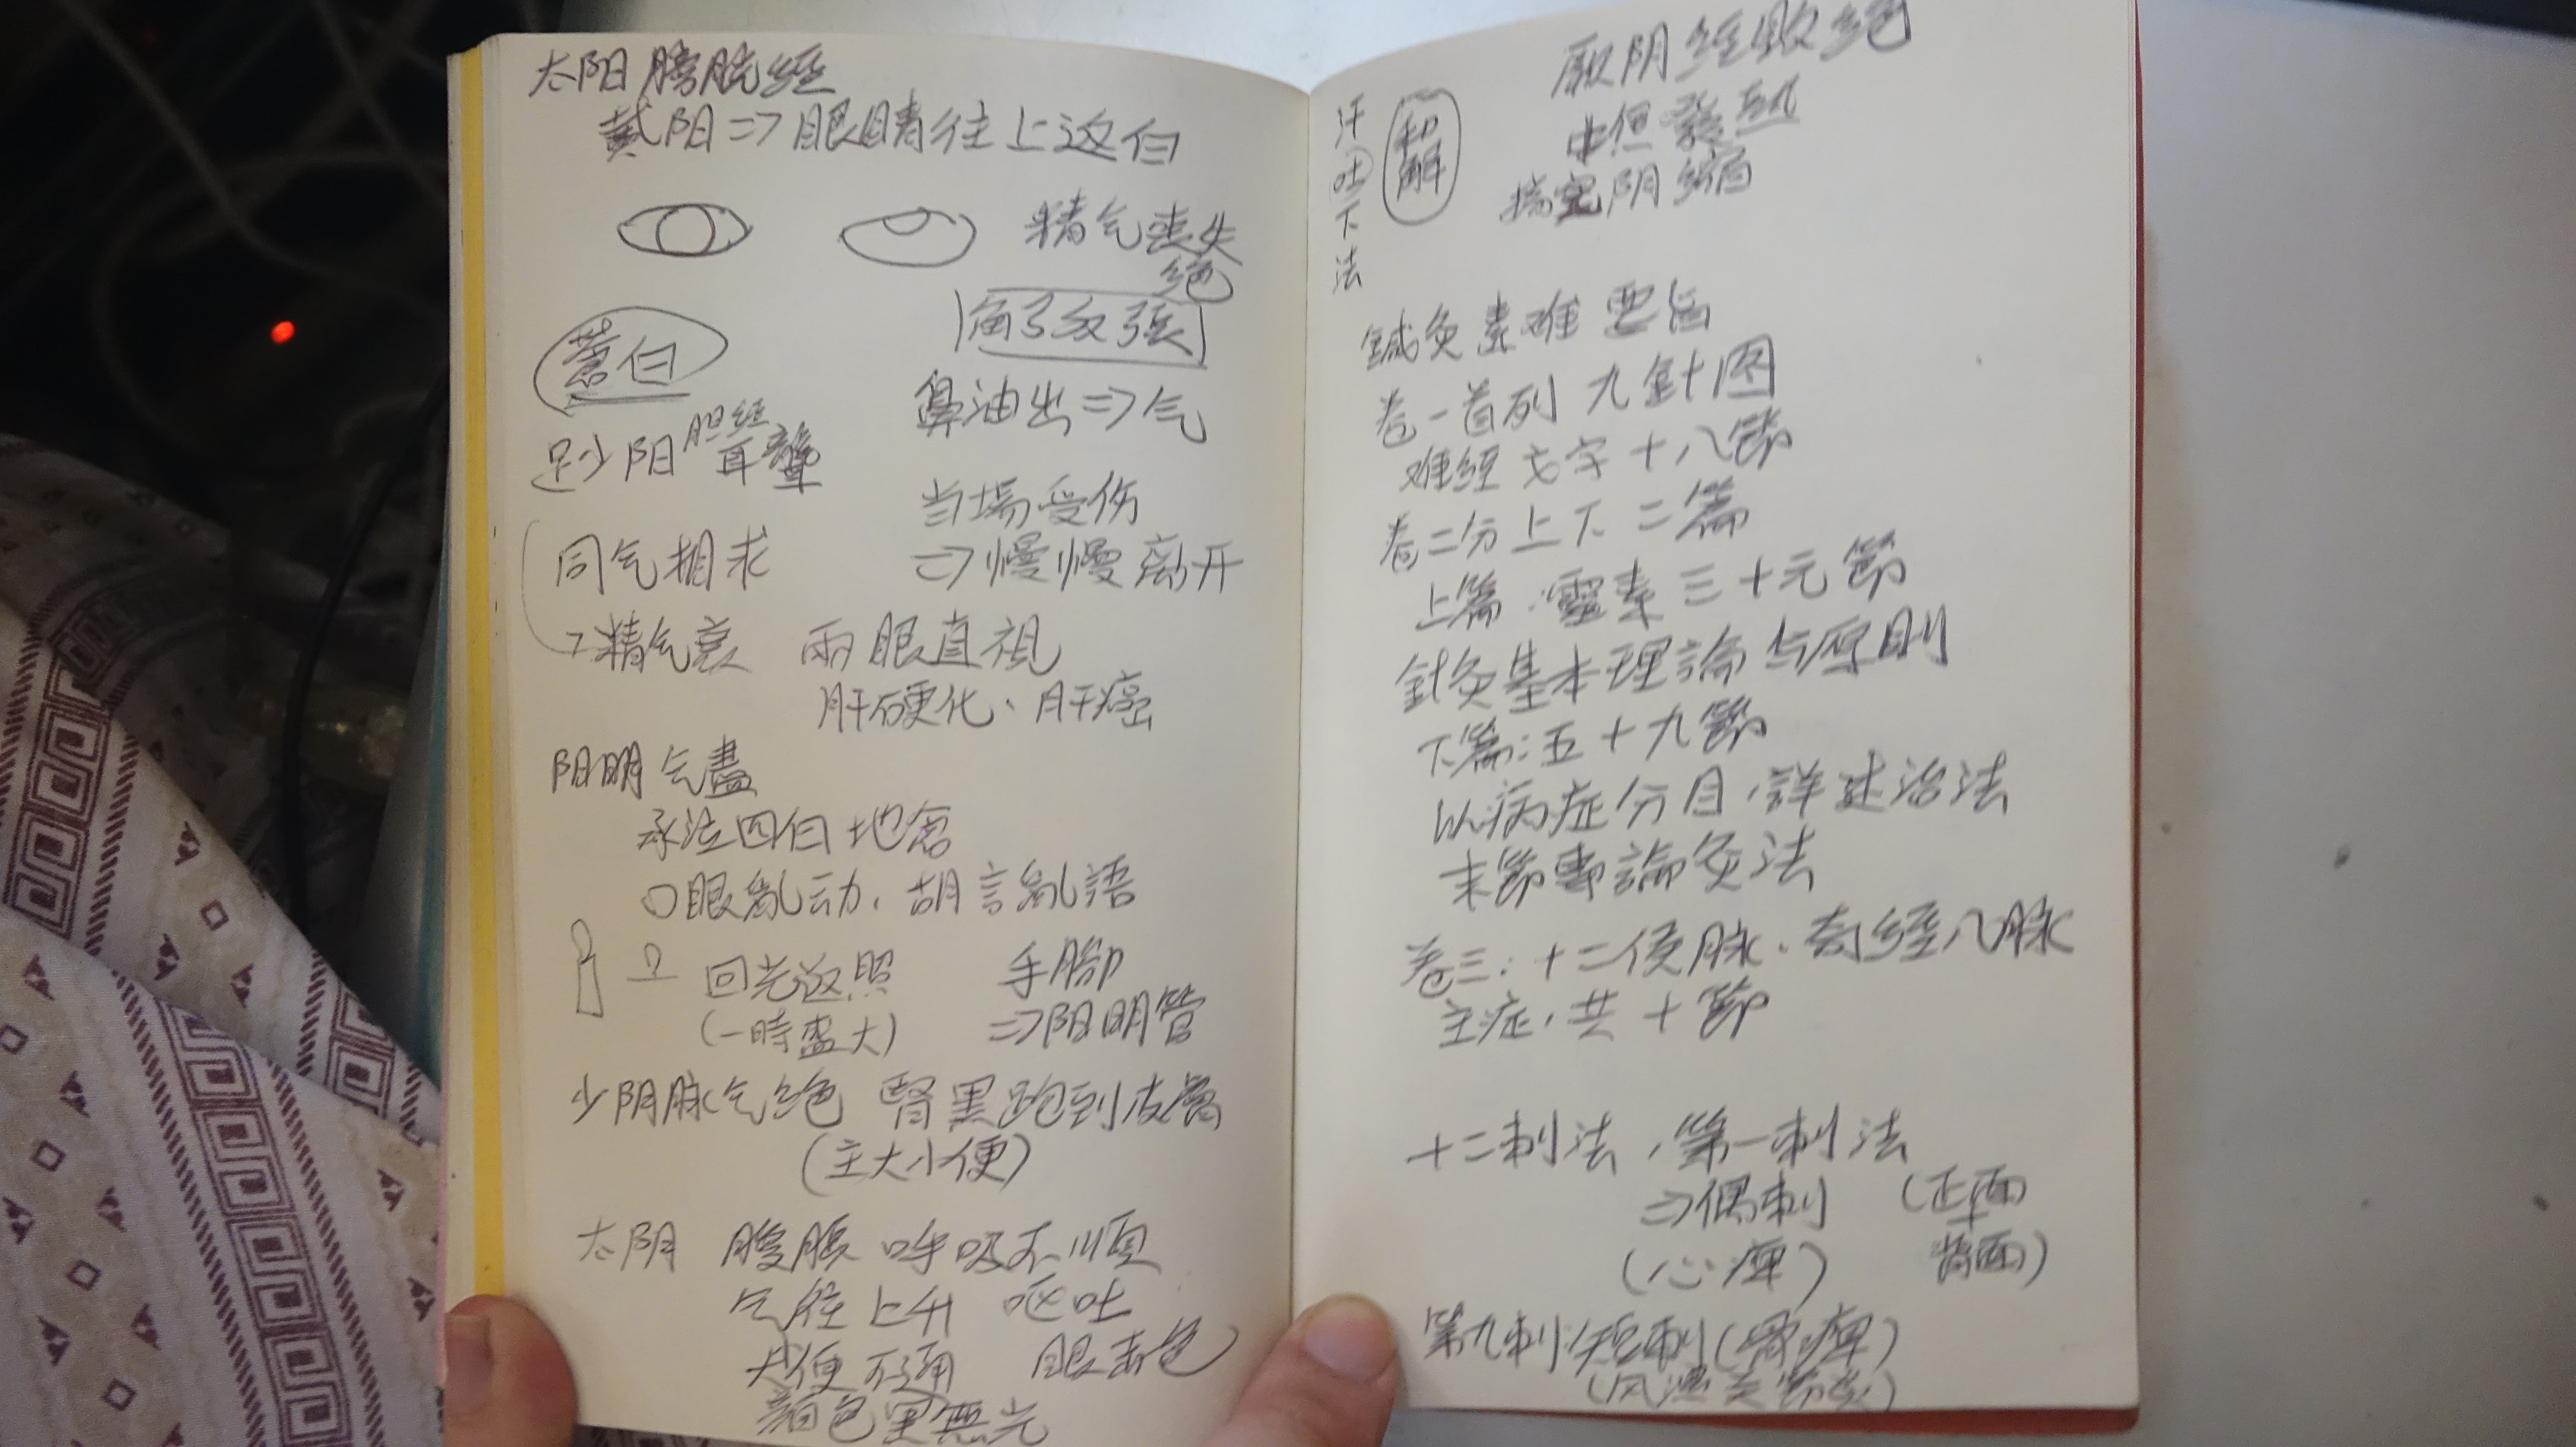 太阳膀胱经
戴阳⇒眼睛往上这白
精气丧失
绝
角弓反張
蒼白
鼻油出⇒气
足少阳胆经耳聾
当場受伤
⇒慢慢离开
同气相求
精气衰 兩眼直視
肝硬化、肝癌
阳明气盡
承泣四白地倉
口眼亂动、胡言亂語
回光返照
(一時盛大)
手腳
⇒阳明管
少阴脉气绝 腎黑跑到皮膚
(主大小便)
太阴 腹脹 呼吸不順
气往上升 呕吐
大便不通
顏色黑無光
汗吐下法
和解
厥阴经敗绝
阴縮
鍼灸素难要旨
卷一首列 九針图
难经文字十八節
卷二分上下二篇
上篇:靈素三十元節
針灸基本理論与原則
下篇:五十九節
以病症分目,詳述治法
末節專論灸法
卷三:十二侯脉、奇经八脉
主症,共十節
十二刺法,第一刺法
⇒偶刺
(心痺)
(正面
+
背面)
第九刺:短刺(骨痺)